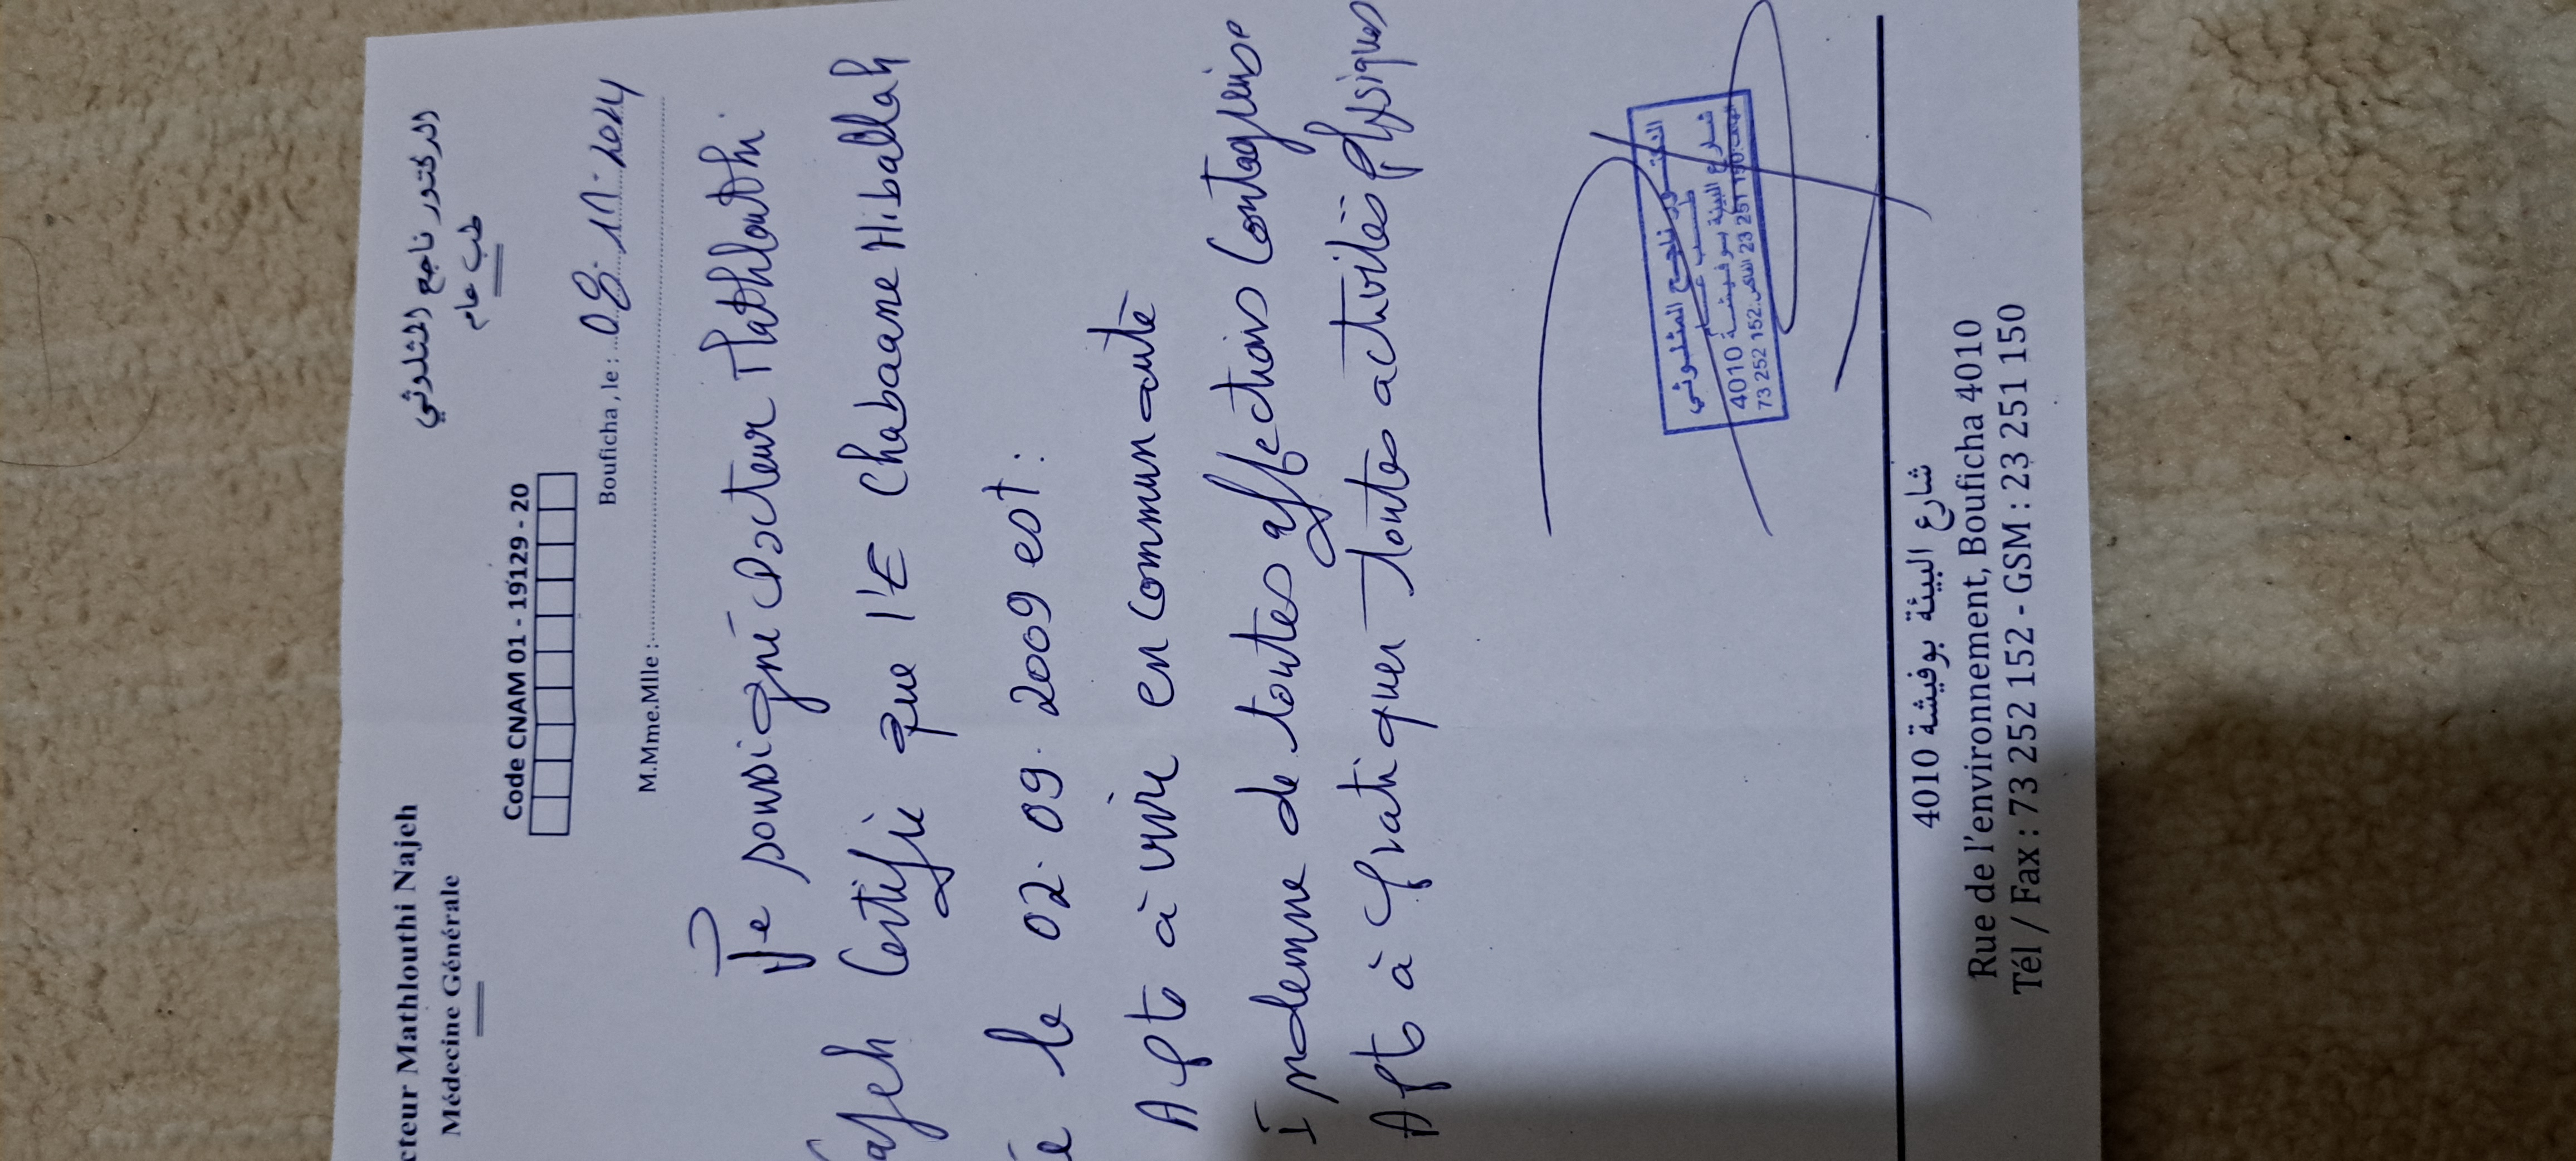 cteur Mathlouthi Najeh
Médecine Générale
الدكتور ناجح المثلوثي
طب عام
Code CNAM 01 - 19129 - 20
Bouficha, le : 08. 11. 2024
M.Mme.Mlle :
Je soussigné Docteur Mathlouthi
ajeh Certifie que l'E Chabaane Hiballah
e le 02. 09. 2009 est :
Apte à vivre en communauté
Indemne de toutes affections Contagieuse
Apte à pratiquer toutes activités physiques
الدكتور ناجح المثلوثي
طب عام
شارع البيئة بوفيشة 4010
الهاتف: 150 251 23 الفاكس: 152 252 73
شارع البيئة بوفيشة 4010
Rue de l'environnement, Bouficha 4010
Tél / Fax : 73 252 152 - GSM : 23 251 150